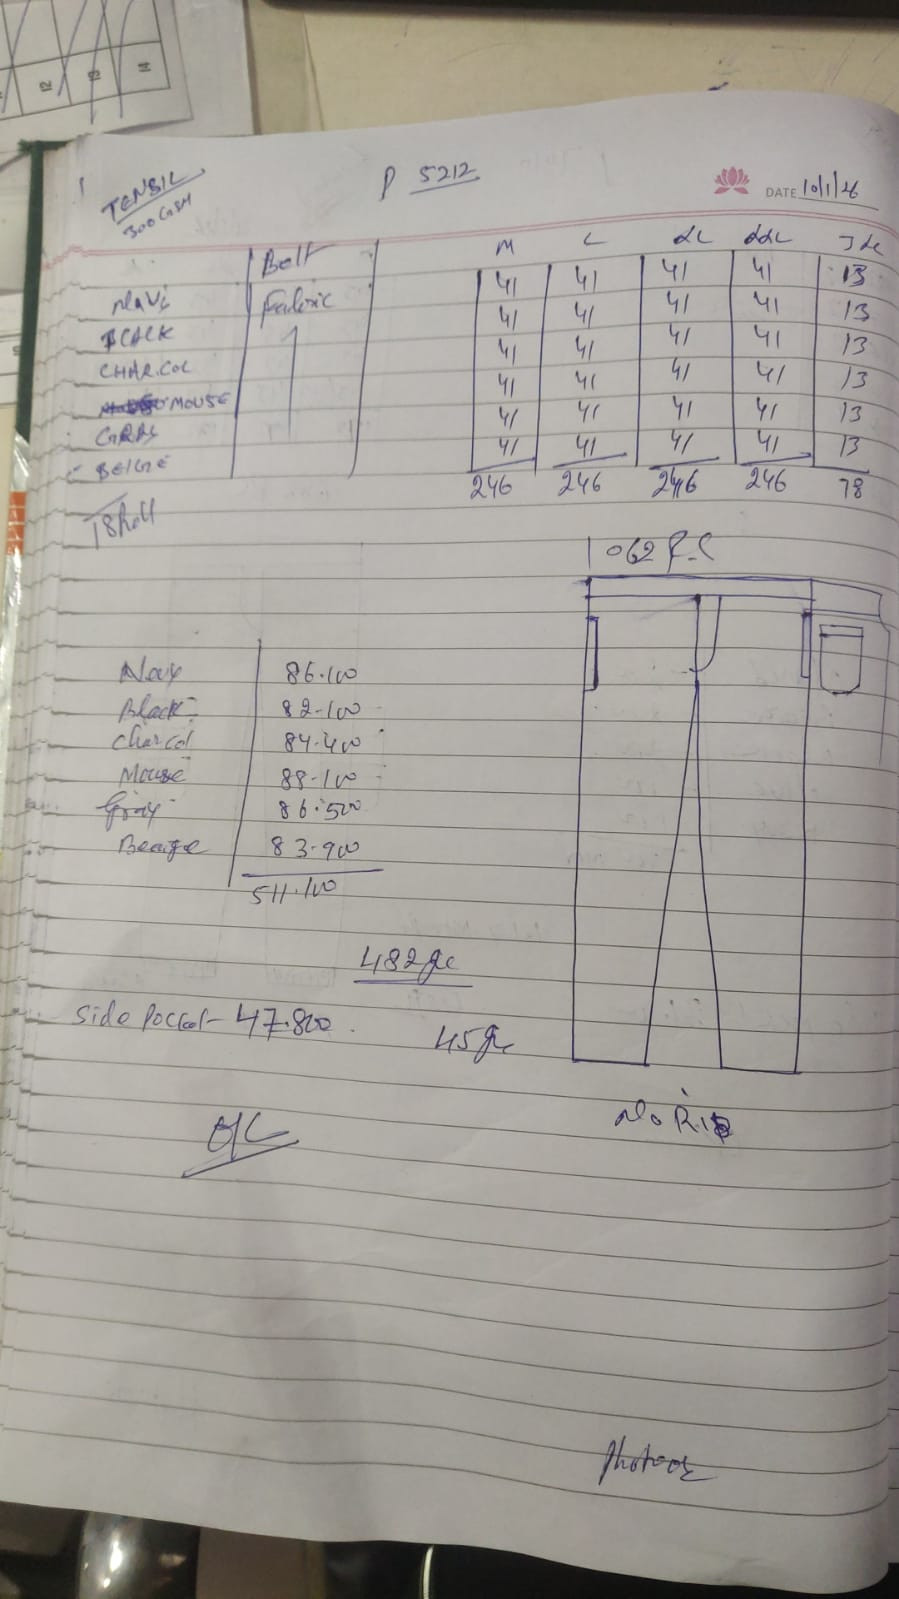 12 13 14
TENSIL
300 GSM
P 5212
DATE 10/1/26
Belt M L XL XXL 3XL
Navi Fabric 41 41 41 41 13
BLACK 41 41 41 41 13
CHAR.COL 41 41 41 41 13
MOUSE 41 41 41 41 13
GRAY 41 41 41 41 13
BEIGE 41 41 41 41 13
246 246 246 246 78
18 Roll
1062 P.C
Navy 86.100
Black 82.100
Charcol 84.400
Mouse 88.100
Gray 86.500
Beaige 83.900
511.100
482 gm
Side Pocket - 47.800
45 gm
No Rib